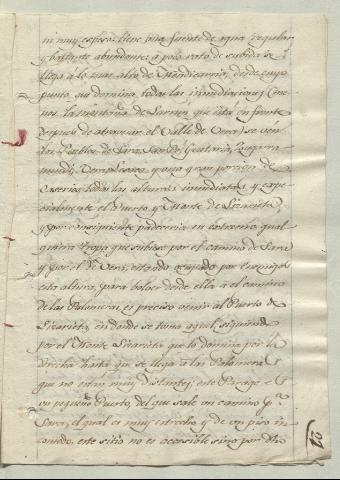 ni muy espesa: tiene una fuente de agua regular
y bastante abundante; a poco rato de subida se
llega à lo mas alto de desde cuyo
punto, que domina todas las inmediaciones, (me
nos la montaña de Larrun que está en frente
despues de atravesar el Valle de Vera) se ven
los Pueblos de Sara, San
y gran porcion de
Caserios, todas las alturas inmediatas, y espe
cialmente el Puerto y Monte de Lizarieta,
y por consiguiente padeceria en estremo qual
quiera Tropa que subiese por el camino de Sara
y por el de Vera, estando ocupada por enemigos
esta altura; para bolver desde ella à el camino
de las Palomeras, es preciso venir al Puerto de
Lizarieta, en donde se toma aquel, siguiendo
por el Monte Lizarieta que lo domina por la
derecha hasta que se llega à las Palomeras
que no estan muy distantes; este Parage es
un pequeño Puerto, del que sale un camino pª
Sara, el qual es muy estrecho y de un piso in
comodo, este sitio no es accesible sino por dho